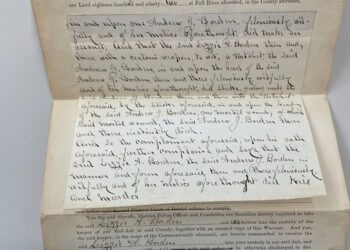 our Lord eighteen hundred and ninety-two at Fall River aforesaid, in the County aforesaid,
in and upon one Andrew J. Borden, feloniously wil-
fully and of his malice aforethought did make an
assault. And that the said Lizzie A. Borden then and
there with a certain weapon, to wit, a Hatchet the said
Andrew J. Borden, in and upon the head of the said
Andrew J. Borden then and there feloniously wilfully
and of malice aforethought, did strike, giving unto the
aforesaid, by the stroke aforesaid, in and upon the head
of the said Andrew J. Borden, one mortal wound, of which
said mortal wound, the said Andrew J. Borden then
and there instantly died.
And so the complainant aforesaid, upon his oath
aforesaid, further complains & says that the
said Lizzie A. Borden, the said Andrew J. Borden in
manner and form aforesaid, then and there feloniously
wilfully and of malice aforethought did kill
and murder
You the said Sheriff, District Police Officer and Constables are therefore hereby required to take
the said Lizzie A. Borden and deliver into the custody of the
keeper of our Jail in said County, together with an attested copy of this Warrant. And you,
the said keeper, in the name of the Commonwealth aforesaid, are hereby commanded to receive
the said Lizzie A. Borden into your custody in our said Jail, and
or otherwise discharged in due